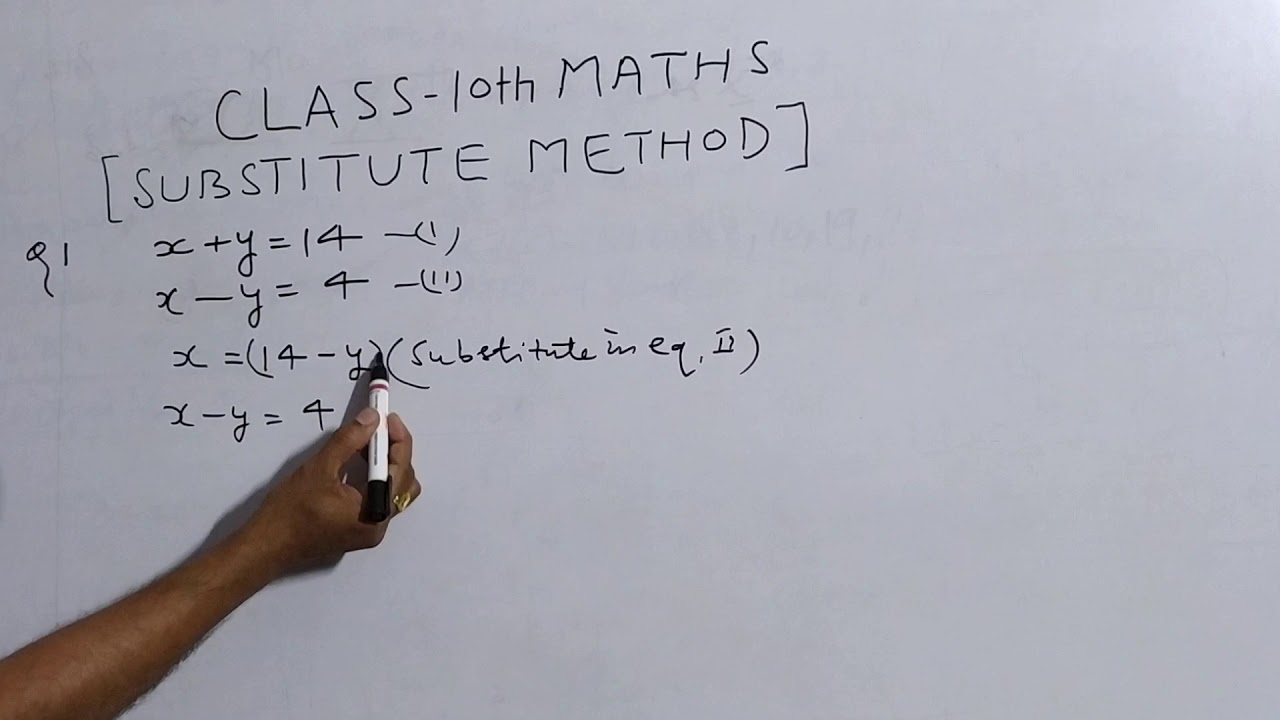 CLASS-10th MATHS
[SUBSTITUTE METHOD]
Q1 x+y=14 —(I)
x—y= 4 —(II)
x =(14-y)(Substitute in eq. II)
x-y= 4